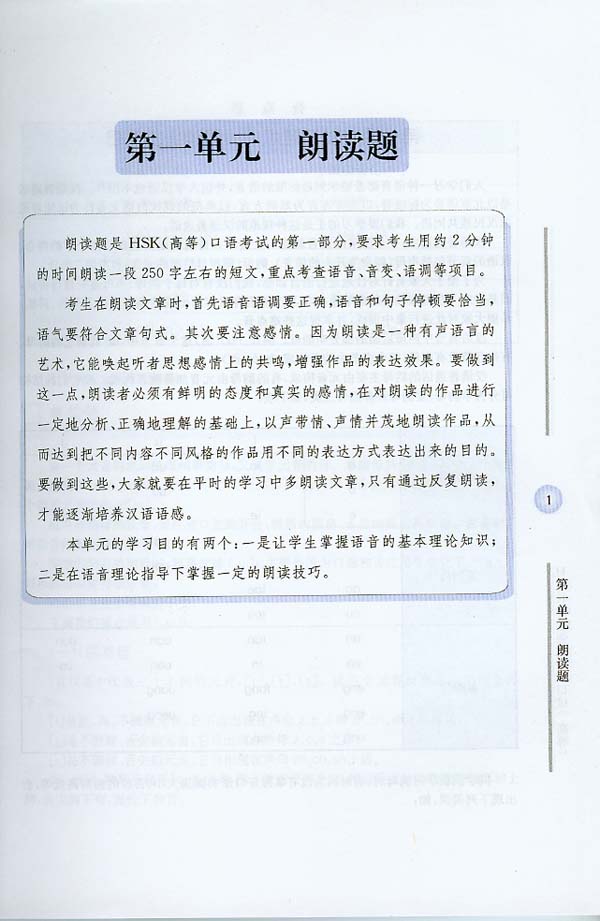 第一单元 朗读题
朗读题是 HSK(高等)口语考试的第一部分,要求考生用约 2 分钟
的时间朗读一段 250 字左右的短文,重点考查语音、音变、语调等项目。
考生在朗读文章时,首先语音语调要正确,语音和句子停顿要恰当,
语气要符合文章句式。其次要注意感情。因为朗读是一种有声语言的
艺术,它能唤起听者思想感情上的共鸣,增强作品的表达效果。要做到
这一点,朗读者必须有鲜明的态度和真实的感情,在对朗读的作品进行
一定地分析、正确地理解的基础上,以声带情、声情并茂地朗读作品,从
而达到把不同内容不同风格的作品用不同的表达方式表达出来的目的。
要做到这些,大家就要在平时的学习中多朗读文章,只有通过反复朗读,
才能逐渐培养汉语语感。
本单元的学习目的有两个:一是让学生掌握语音的基本理论知识;
二是在语音理论指导下掌握一定的朗读技巧。
1
第一单元 朗读题